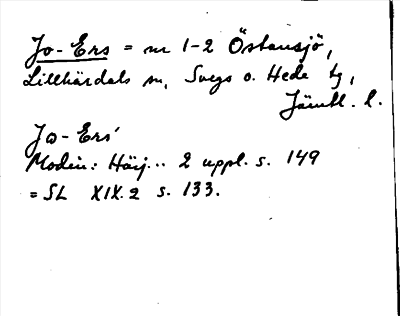 Jo-Ers = nr 1-2 Östansjö,
Lillhärdals sn, Svegs o. Hede tg,
Jämtl. l.
Jo-Ers'
Modin: Härj... 2 uppl. s. 149
= SL XIX.2 s. 133.